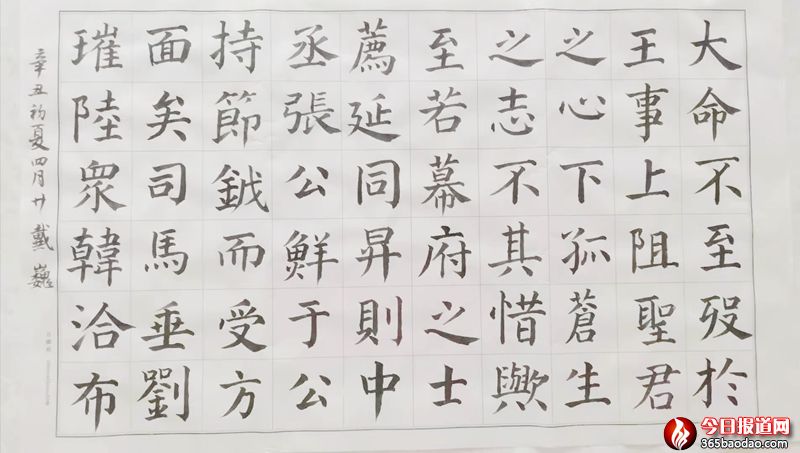 大命不至歿於
王事上阻聖君
之心下孤蒼生
之志不其惜歟
至若幕府之士
薦延同昇則中
丞張公鮮于公
持節鉞而受方
面矣司馬垂劉
璀陸衆韓洽布
辛丑初夏四月廿 戴巍
今日报道网
365baodao.com